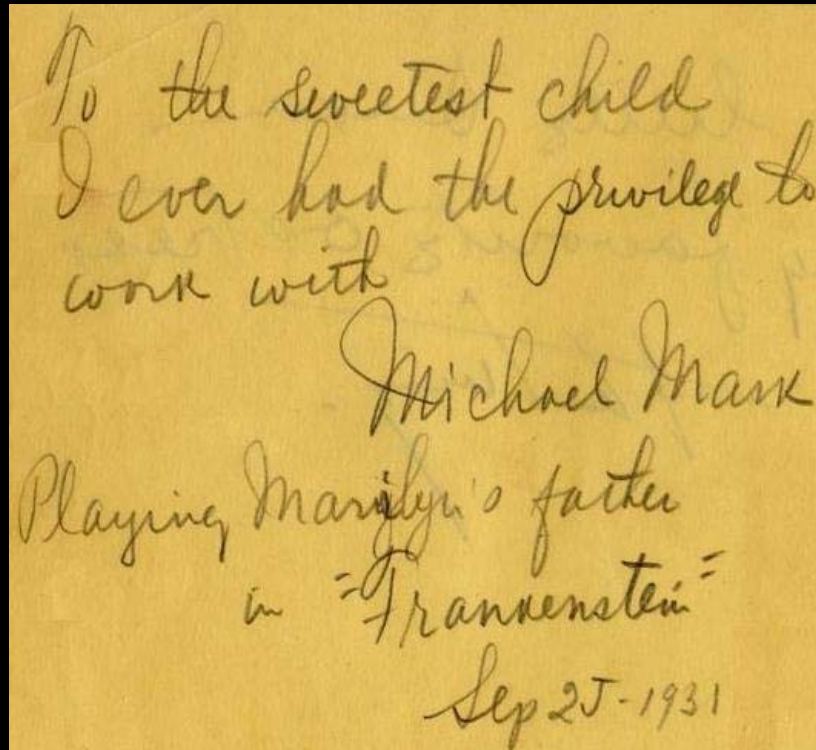 To the sweetest child
I ever had the privilege to
work with
Michael Mark
Playing Marilyn's father
in "Frankenstein"
Sep 25-1931